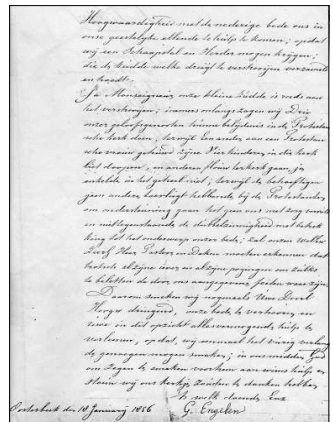 Hoogwaardigheid met de nederige bede ons in
onze geestelijke ellende te hulp te komen; opdat
wij een Schaapstal en Herder mogen krijgen;
die de kudde welke dreigt te verstrooijen verzamelt
en hoedt.
Ja Monseigneur onze kleine kudde is reeds aan
het verstrooijen; immers onlangs zagen wij Drie
onzer geloofsgenooten hunne belijdenis in de Protestan
sche kerk doen, terwijl Een ander aan een Protestan
sche vrouw gehuwd zijne Vier kinderen in die kerk
liet doopen, en anderen flauw ter kerk gaan, ja
enkelde in het geheel niet; terwijl de behoeftigen
geen andere toevlugt hebbende, bij de Protestanten
om onderstand gaan het geen ons met zorg vervult
en
king tot het onderwerp onze bede; zal onzen
Heer Pastoor en Deken moeten erkennen dat
en al zijne pogingen om zulks
te beletten de door ons aangegeven feiten waar zijn
Daarom smeken wij nogmaals Uwe Doorl
Hoogw dringend, onze bede te verhooren, en
ons in dit opzicht alles vermogende hulp te
verleenen, opdat, wij eenmaal het vurig verlangen
de genoegen mogen smaken; in ons midden God
om Zegen te smeken voor hem aan wiens hulp en
Steun wij ons kerkje zouden te danken hebben
't welk doende Enz
Oosterbeek den 18 January 1856
G. Engelen